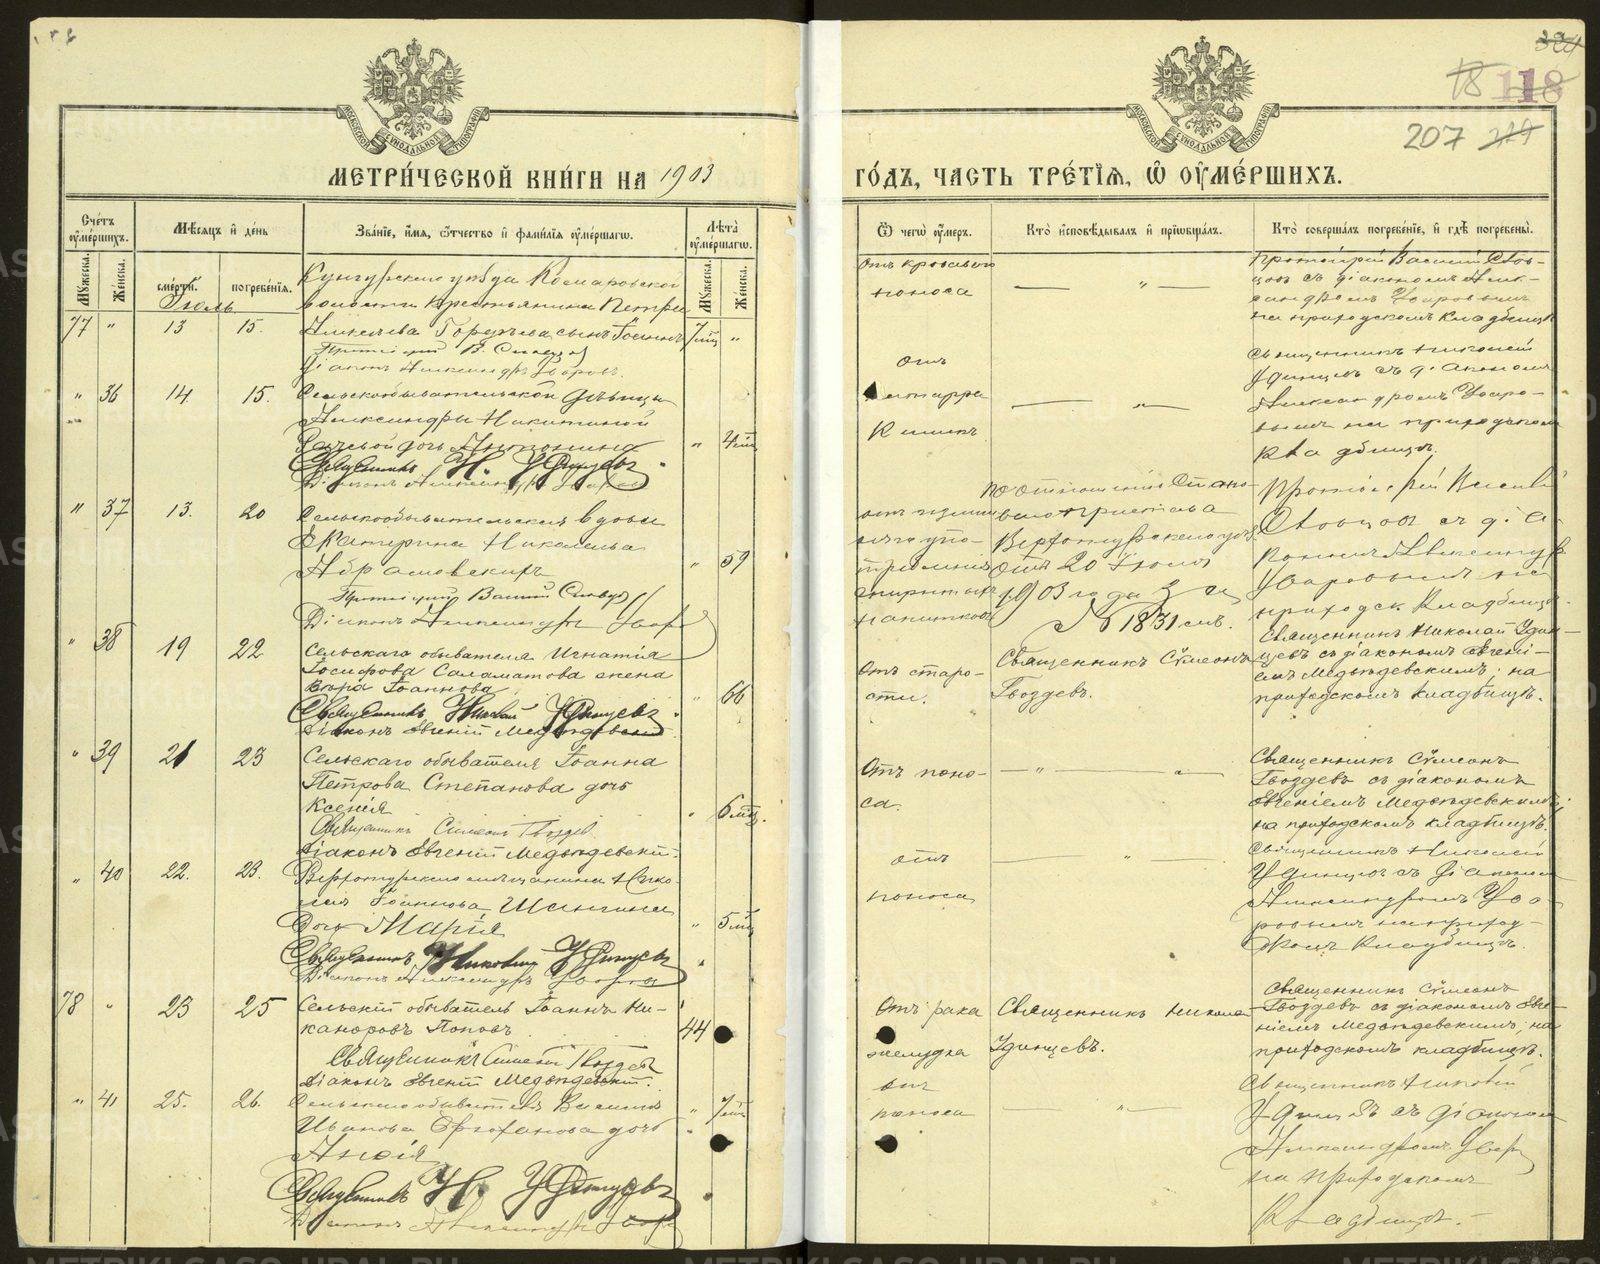 118
207
МЕТРИ́ЧЕСКОЙ КНИ́ГИ НА 1903
ГО́ДЪ, ЧАСТЬ ТРЕ́ТЇЯ, Ѽ ОУ҆МЕ́РШИХЪ.
МОСКОВСКОЙ СѴНОДАЛЬНОЙ ТИПОГРАФІИ
МОСКОВСКОЙ СѴНОДАЛЬНОЙ ТИПОГРАФІИ
Сче́тъ оу҆ме́ршихъ.
Мꙋ́жеска.
Же́нска.
Мѣ́сяцъ и҆ де́нь
сме́рти.
погребе́нїя.
Зва́нїе, и҆́мя, ѻ҆́тчество и҆ фами́лїя оу҆ме́ршагѡ.
Лѣ́та оу҆ме́ршагѡ.
Мꙋ́жеска.
Же́нска.
Ѿ чегѡ̀ оу҆́меръ.
Кто̀ и҆сповѣ́дывалъ и҆ прїѡбща́лъ.
Кто̀ соверша́лъ погребе́нїе, и҆ гдѣ̀ погребены̀.
Іюль
Кунгурскаго уѣзда Комаровской
волости крестьянина Петра
77 " 13 15.
Алексѣева сынъ Іоаннъ
7 мѣс "
Діаконъ Александръ Уваровъ.
Отъ кроваваго
поноса
— " —
Протоіерей Василій Словцовъ съ діакономъ Александромъ Уваровымъ
на приходскомъ кладбищѣ
" 36 14. 15.
Сельскообывательской дѣвицы
Александры Никитиной
дочь Антонина
" 4 мѣс
Священникъ Н. Удинцевъ.
Діаконъ Александръ Уваровъ
отъ
катарра
кишекъ
— " —
Священникъ Николай
Удинцевъ съ діакономъ
Александромъ Уваровымъ на приходскомъ
кладбищѣ.
" 37 13. 20
Сельскообывательская вдова
Екатерина Николаева
Абрамовскихъ
" 59
Протоіерей Василій Словцовъ
Діаконъ Александръ Уваровъ
спиртныхъ
напитковъ
По отношенію Станового пристава
Верхотурскаго уѣз.
отъ 20 Іюля
1903 года за
№ 1831 мъ.
Протоіерей Василій
Словцовъ съ діакономъ Александромъ
Уваровымъ на
приходск. кладбищѣ.
" 38 19 22
Сельскаго обывателя Игнатія
Іосифова Саламатова жена
Вѣра Іоаннова
" 66
Священникъ Николай Удинцевъ
Діаконъ Евгеній Медвѣдевскій
Отъ старости.
Священникъ Сѵмеонъ
Гвоздевъ.
Священникъ Николай Удинцевъ съ діакономъ Евгеніемъ Медвѣдевскимъ, на
приходскомъ кладбищѣ.
" 39 21 23
Сельскаго обывателя Іоанна
Петрова Степанова дочь
Ксенія
" 6 мѣс.
Священникъ Симеонъ Гвоздев
Діаконъ Евгеній Медвѣдевскій.
Отъ поноса.
— " — " —
Священникъ Сѵмеонъ
Гвоздевъ съ діакономъ
Евгеніемъ Медвѣдевскимъ,
на приходскомъ кладбищѣ.
" 40 22. 23.
Верхотурскаго мѣщанина Николая Іоаннова Шангина
Дочь Марія
" 5 мѣс
Священникъ Николай Удинцевъ
Діаконъ Александръ Уваровъ
отъ
поноса
— " —
Священникъ Николай
Удинцевъ съ діакономъ
Александромъ Уваровымъ на приходскомъ кладбищѣ.
78 " 23 25
Сельскій обыватель Іоаннъ Никаноровъ Поповъ
44
Священникъ Симеонъ Гвоздевъ
Діаконъ Евгеній Медвѣдевскій.
Отъ рака
желудка
Священникъ Николай
Удинцевъ.
Священникъ Сѵмеонъ
Гвоздевъ съ діакономъ Евгеніемъ Медвѣдевскимъ, на
приходскомъ кладбищѣ.
" 41 25. 26.
Сельскаго обывателя Василія
Иванова дочь
" 7 мѣс
Священникъ Н. Удинцевъ
Діаконъ Александръ Уваровъ
отъ
поноса
— " —
Священникъ Николай
Удинцевъ съ діакономъ
Александромъ Увар
на приходскомъ
кладбищѣ. —